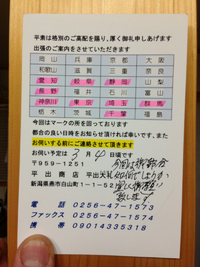 平素は格別のご高配を賜り、厚く御礼申しあげます
出張のご案内をさせていただきます
岡山 兵庫 京都 大阪
和歌山 滋賀 三重 奈良
愛知 岐阜 静岡 山梨
長野 福井 石川 富山
神奈川 東京 埼玉 群馬
栃木 茨城 千葉 福島
今回はマークの所を回っております
都合の良い日時をお知らせ頂ければ幸いです。
お伺いする前にご連絡させて頂きます
お伺い予定は 3月4日頃です
〒959-1251
平出商店 平出
新潟県燕市白山町1-1-5
電話 0256-47-1573
ファックス 0256-47-1574
携帯 09014335318